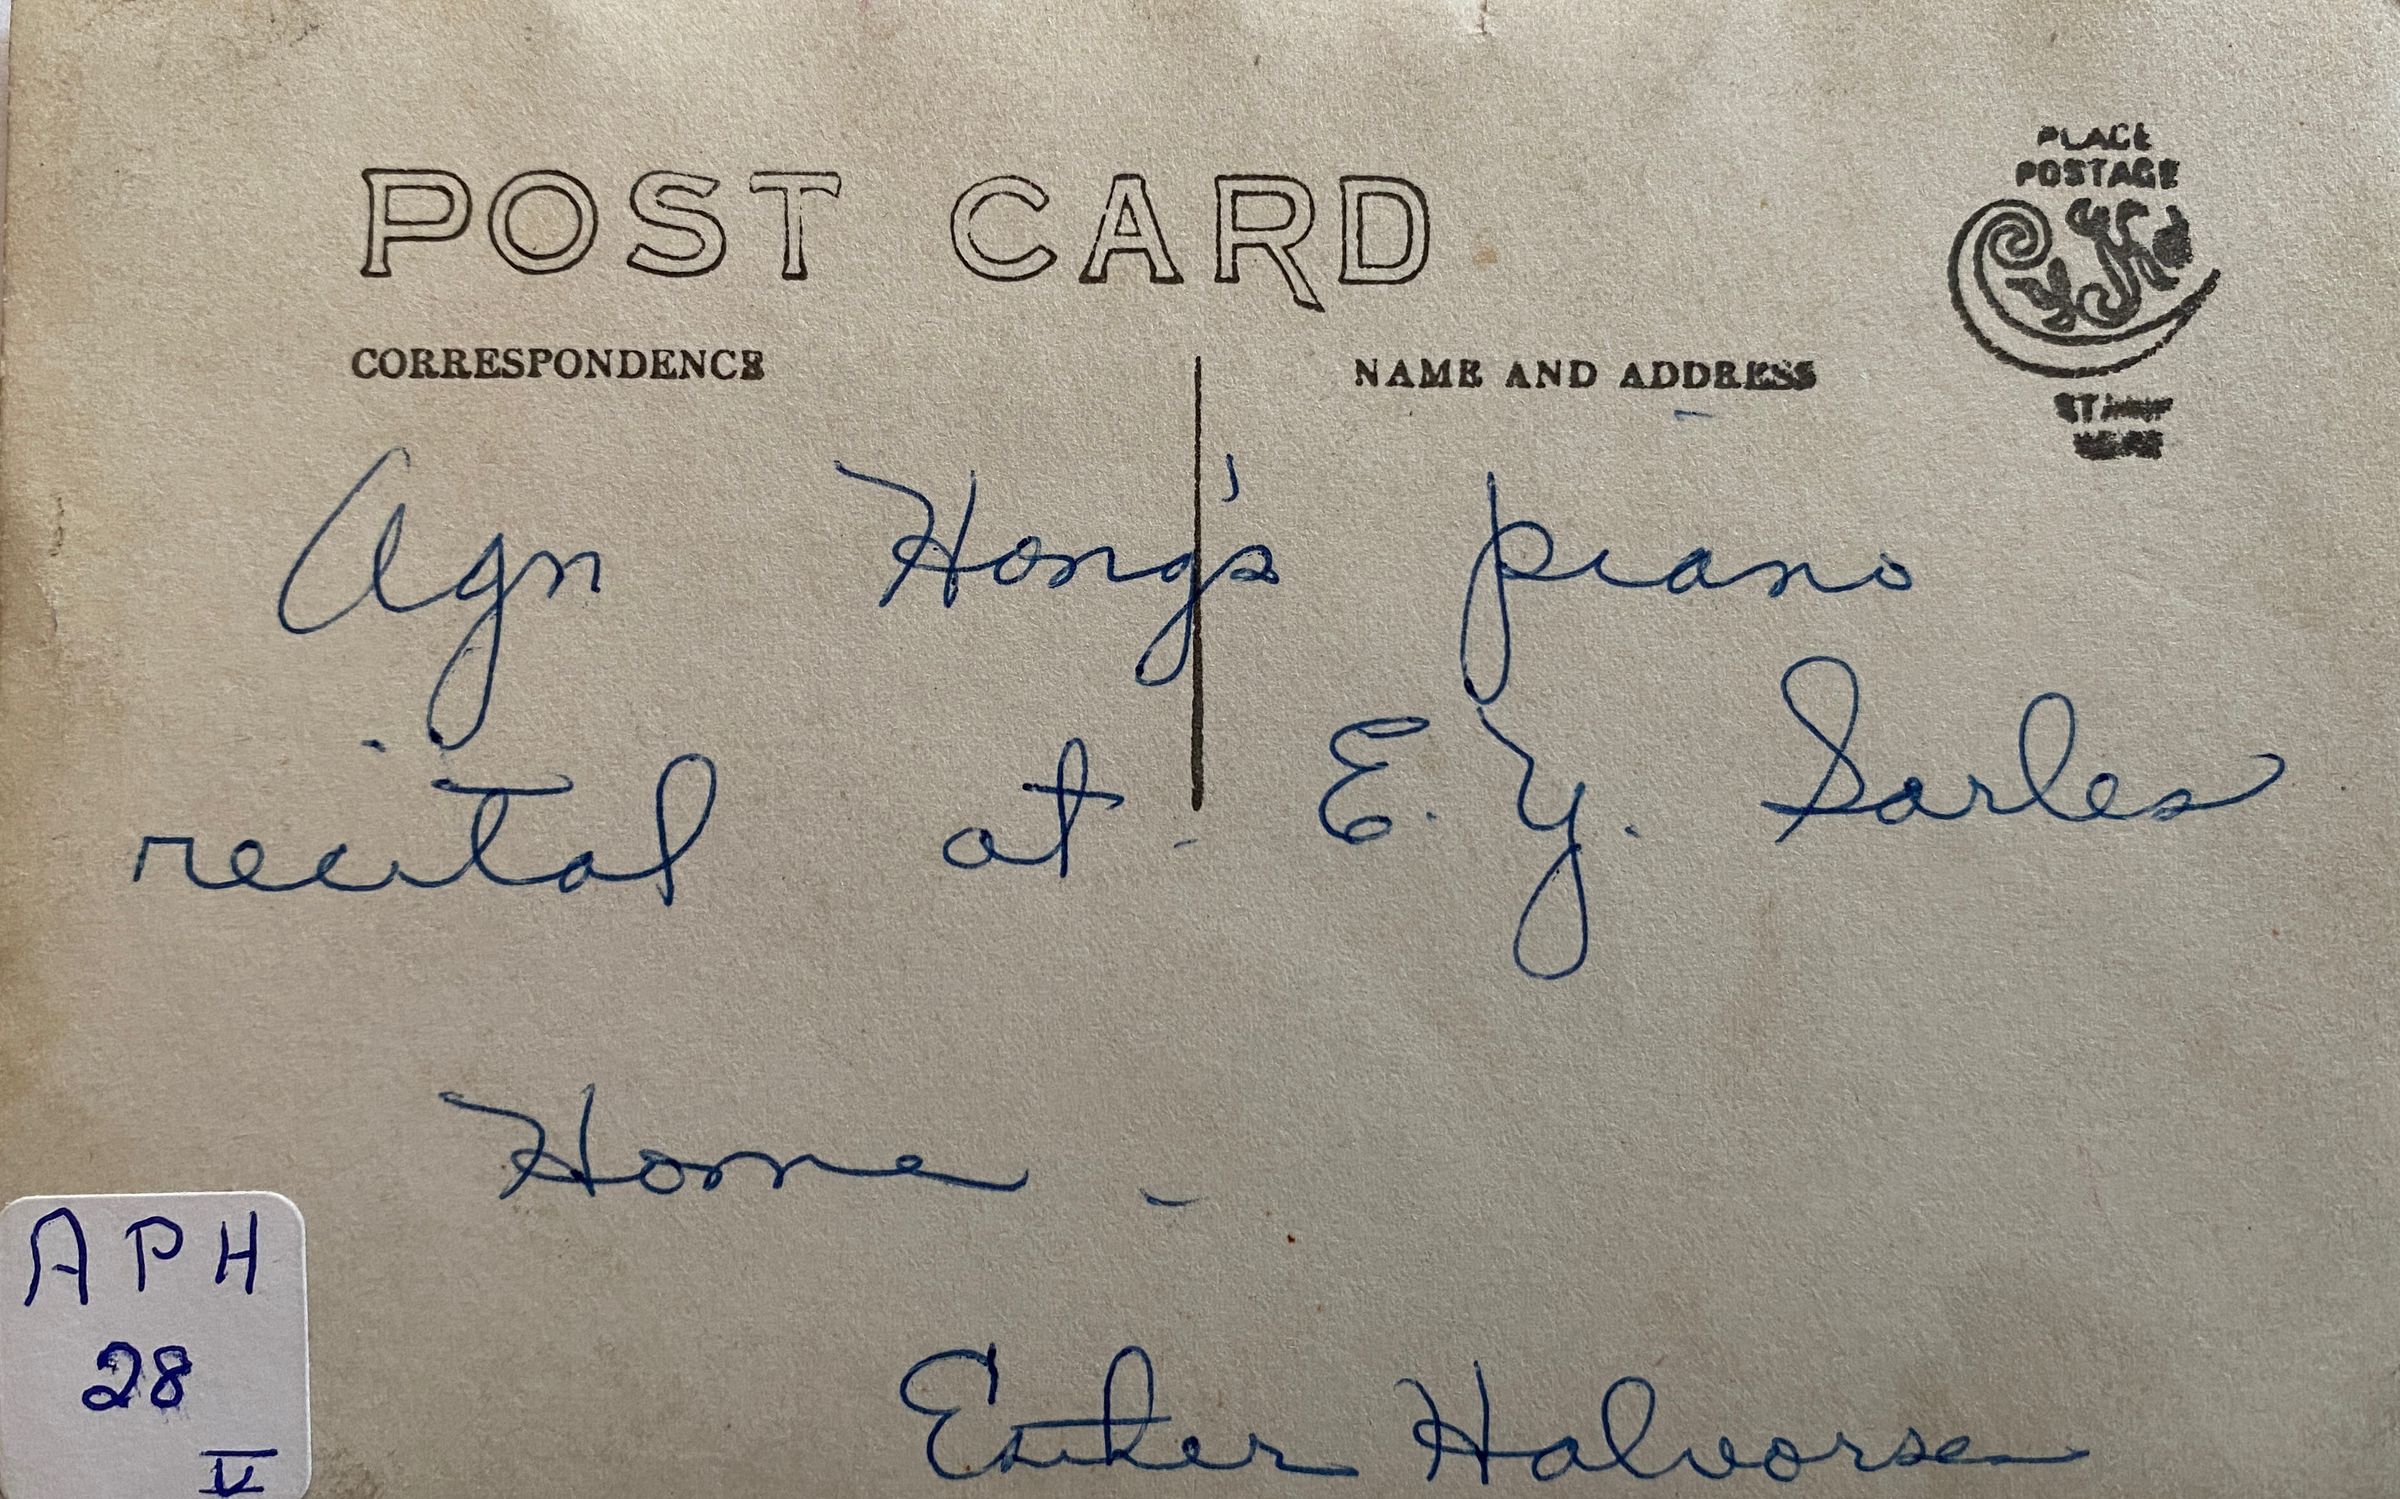 POST CARD
PLACE
POSTAGE
STAMP
HERE
CORRESPONDENCE
NAME AND ADDRESS
Agn Hong's piano
recital at E. Y. Sarles
Home -
Esther Halvorsen
APH
28
V